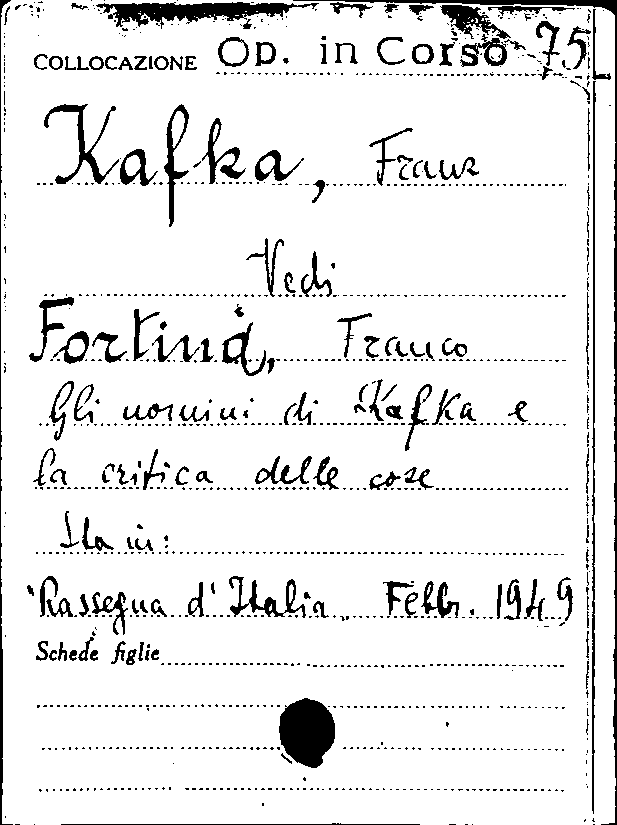 COLLOCAZIONE Op. in Corso 75
Kafka, Franz
Vedi
Fortini, Franco
Gli uomini di Kafka e
la critica delle cose
Sta in:
"Rassegna d'Italia" Febbr. 1949
Schede figlie